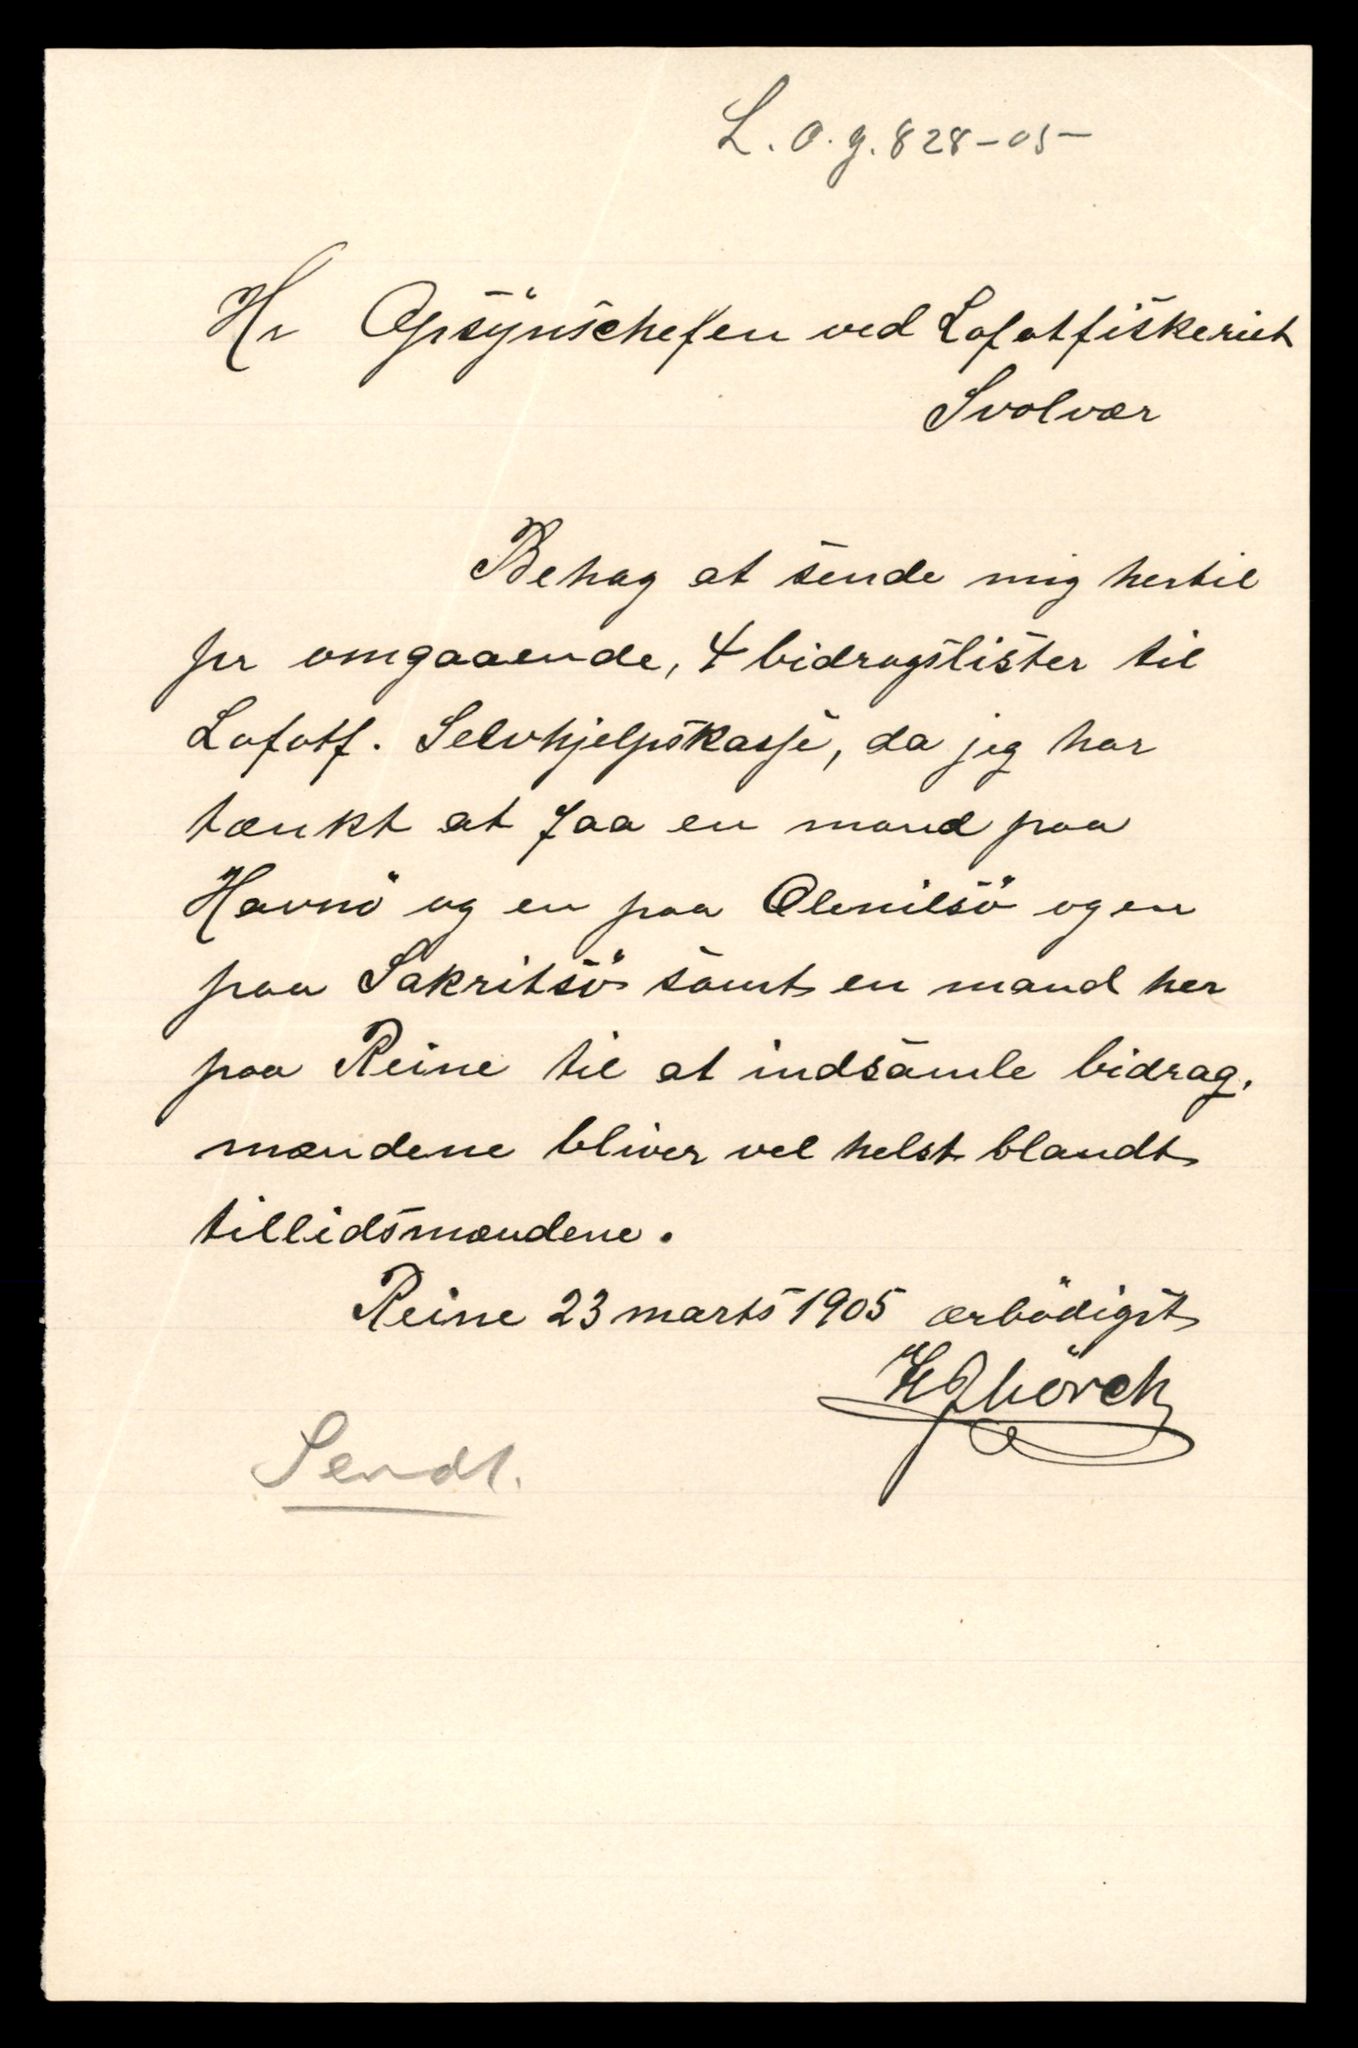 L. o. g. 828-05-
Hr Opsynschefen ved Lofotfiskeriet
Svolvær
Behag at sende mig hertil
pr omgaaende, 4 bidragslister til
Lofotf. Selvhjelpskasse, da jeg har
tænkt at faa en mand paa
Havnö og en paa Olenilsö og en
paa Sakritsö samt en mand her
paa Reine til at indsamle bidrag.
mændene bliver vel helst blandt
tillidsmændene.
Reine 23 marts 1905 ærbödigst
Mörch
Sendt.